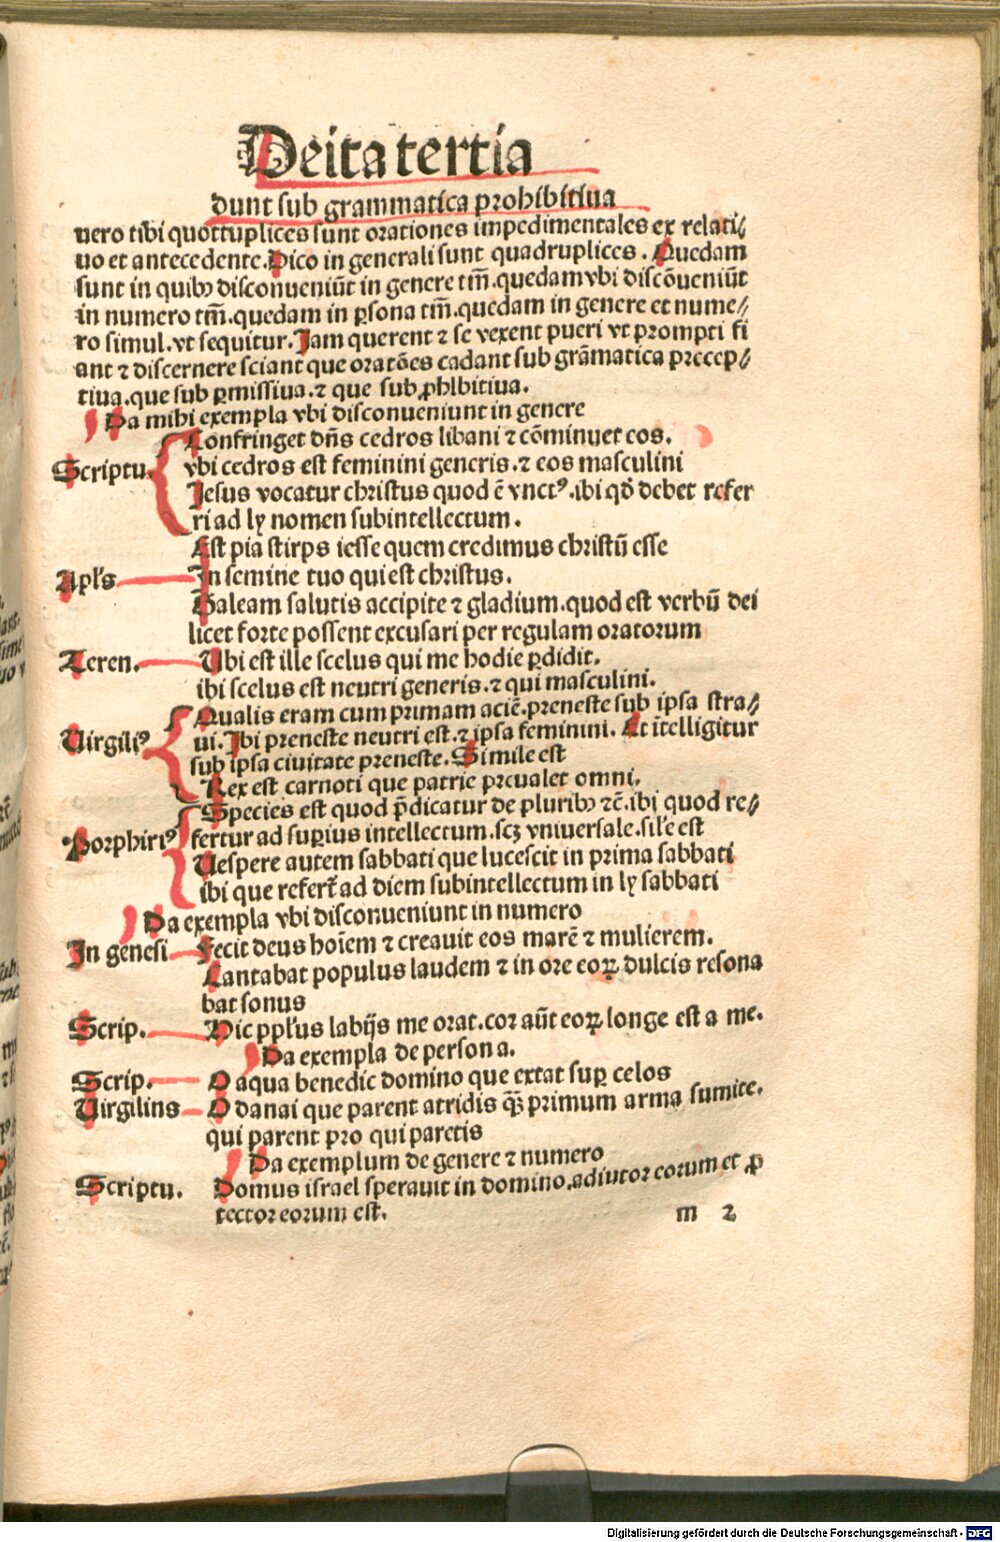 Deita tertia
dunt sub grammatica prohibitiua
uero tibi quottuplices sunt orationes impedimentales ex relati⸗
uo et antecedente. Dico in generali sunt quadruplices. Quedam
sunt in quibꝫ discõueniũt in genere tm̃. quedam vbi discõueniũt
in numero tm̃. quedam in ꝑsona tm̃. quedam in genere et nume⸗
ro simul. vt sequitur. Jam querent ⁊ se vexent pueri vt prompti fi
ant ⁊ discernere sciant que oratões cadant sub grãmatica precep⸗
tiua. que sub ꝑmissiua. ⁊ que sub ꝓhlbitiua.
Da mihi exempla vbi disconueniunt in genere
Confringet dñs cedros libani ⁊ cõminuet eos.
Scriptu. vbi cedros est feminini generis. ⁊ eos masculini
Jesus vocatur christus quod ē vnctꝰ. ibi qd̛ debet refer
ri ad ly nomen subintellectum.
Est pia stirps iesse quem credimus christũ esse
Apl's In semine tuo qui est christus.
Galeam salutis accipite ⁊ gladium. quod est verbũ dei
licet forte possent excusari per regulam oratorum
Teren. Ubi est ille scelus qui me hodie ꝑdidit.
ibi scelus est neutri generis. ⁊ qui masculini.
Qualis eram cum primam aciẽ. preneste sub ipsa stra⸗
Uirgiliꝰ ui. Jbi preneste neutri est. ⁊ ipsa feminini. Et ĩtelligitur
sub ipsa ciuitate preneste. Simile est
Rex est carnoti que patrie preualet omni.
Species est quod p̃dicatur de pluribꝫ ⁊c̃. ibi quod re⸗
Porphiriꝰ fertur ad suꝑius intellectum. scꝫ vniuersale. sil'e est
Uespere autem sabbati que lucescit in prima sabbati
ibi que refert̃ ad diem subintellectum in ly sabbati
Da exempla vbi disconueniunt in numero
In genesi Fecit deus hoĩem ⁊ creauit eos marẽ ⁊ mulierem.
Cantabat populus laudem ⁊ in ore eoꝝ dulcis resona
bat sonus
Scrip. Hic ppl'us labijs me orat. cor aũt eoꝝ longe est a me.
Da exempla de persona.
Scrip. O aqua benedic domino que extat suꝑ celos
Uirgilins O danai que parent atridis qꝫ̃ primum arma sumite.
qui parent pro qui paretis
Da exemplum de genere ⁊ numero
Scriptu. Domus israel sperauit in domino. adiutor eorum et ꝓ
tector eorum est.
m 2
Digitalisierung gefördert durch die Deutsche Forschungsgemeinschaft - DFG